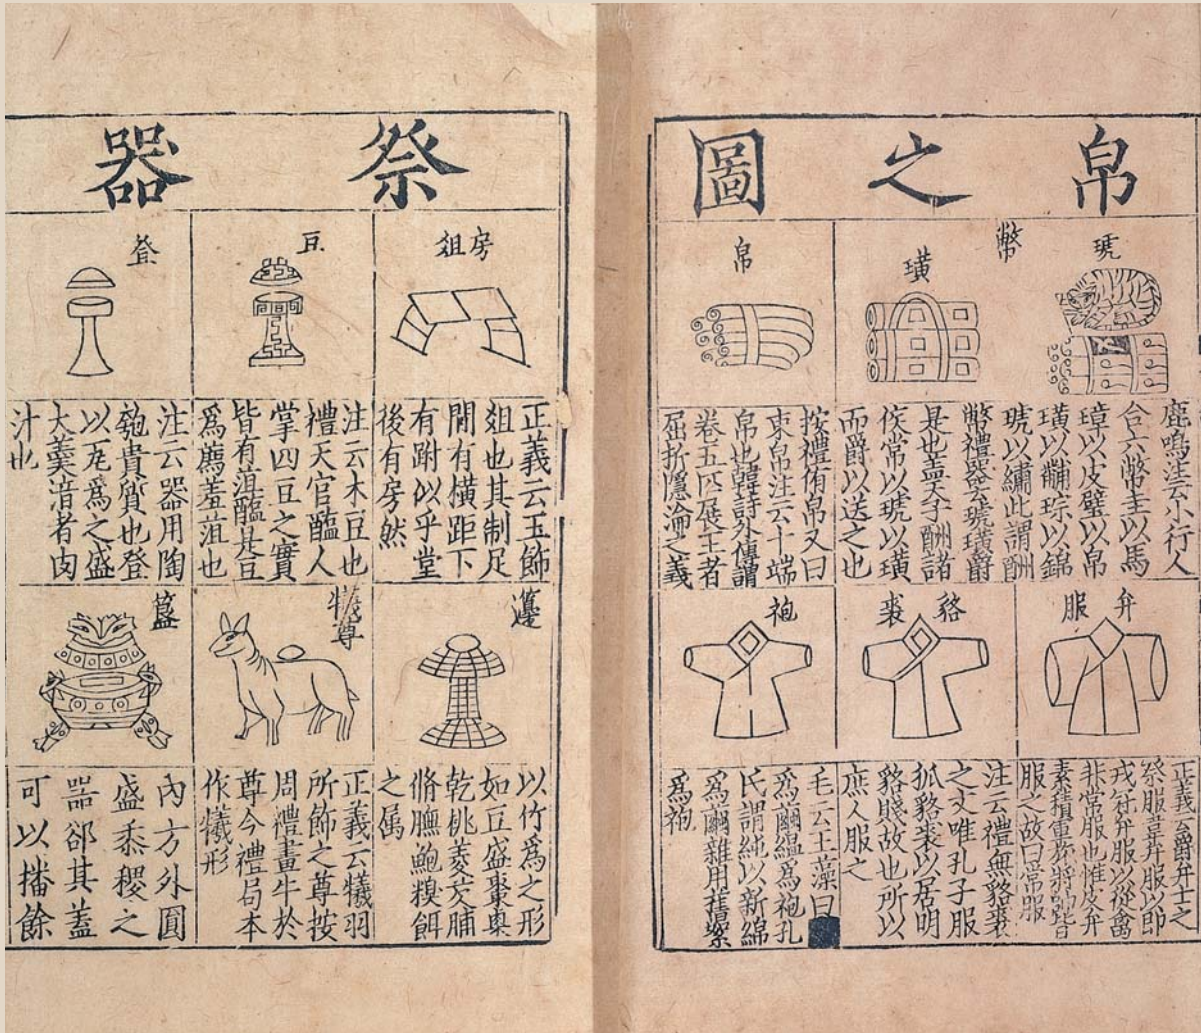 帛之圖
琥
幣
璜
帛
鹿鳴注云小行人
合六幣圭以馬
璋以皮璧以帛
璜以黼琮以錦
琥以繡此謂酬
幣禮器云琥璜爵
是也盖天子酬諸
侯常以琥以璜
而爵以送之也
按禮侑帛又曰
束帛注云十端
帛也韓詩外傳謂
卷五匹展王者
屈折隱淪之義
弁服
貉裘
袍
正義云爵弁士之
祭服韋弁服以即
戎冠弁服以從禽
非常服也惟皮弁
素積重將帥皆
服之故曰常服
注云禮無貉裘
之文唯孔子服
狐貉裘以居明
貉賤故也所以
庶人服之
毛云玉藻曰
爲襺緼爲袍孔
氏謂純以新綿
爲襺雜用舊絮
爲袍
祭器
房俎
豆
登
正義云玉飾
俎也其制足
間有橫距下
有跗似乎堂
後有房然
注云木豆也
禮天官醢人
掌四豆之實
皆有菹醢是豆
爲薦羞菹也
注云器用陶
匏貴質也登
以瓦爲之盛
大羹湆者肉
汁也
籩
犧尊
簋
以竹爲之形
如豆盛棗㮚
乾桃菱芡脯
脩膴鮑糗餌
之属
正義云犧羽
所飾之尊按
周禮畫牛於
尊今禮局本
作犧形
內方外圓
盛黍稷之
器郤其蓋
可以播餘